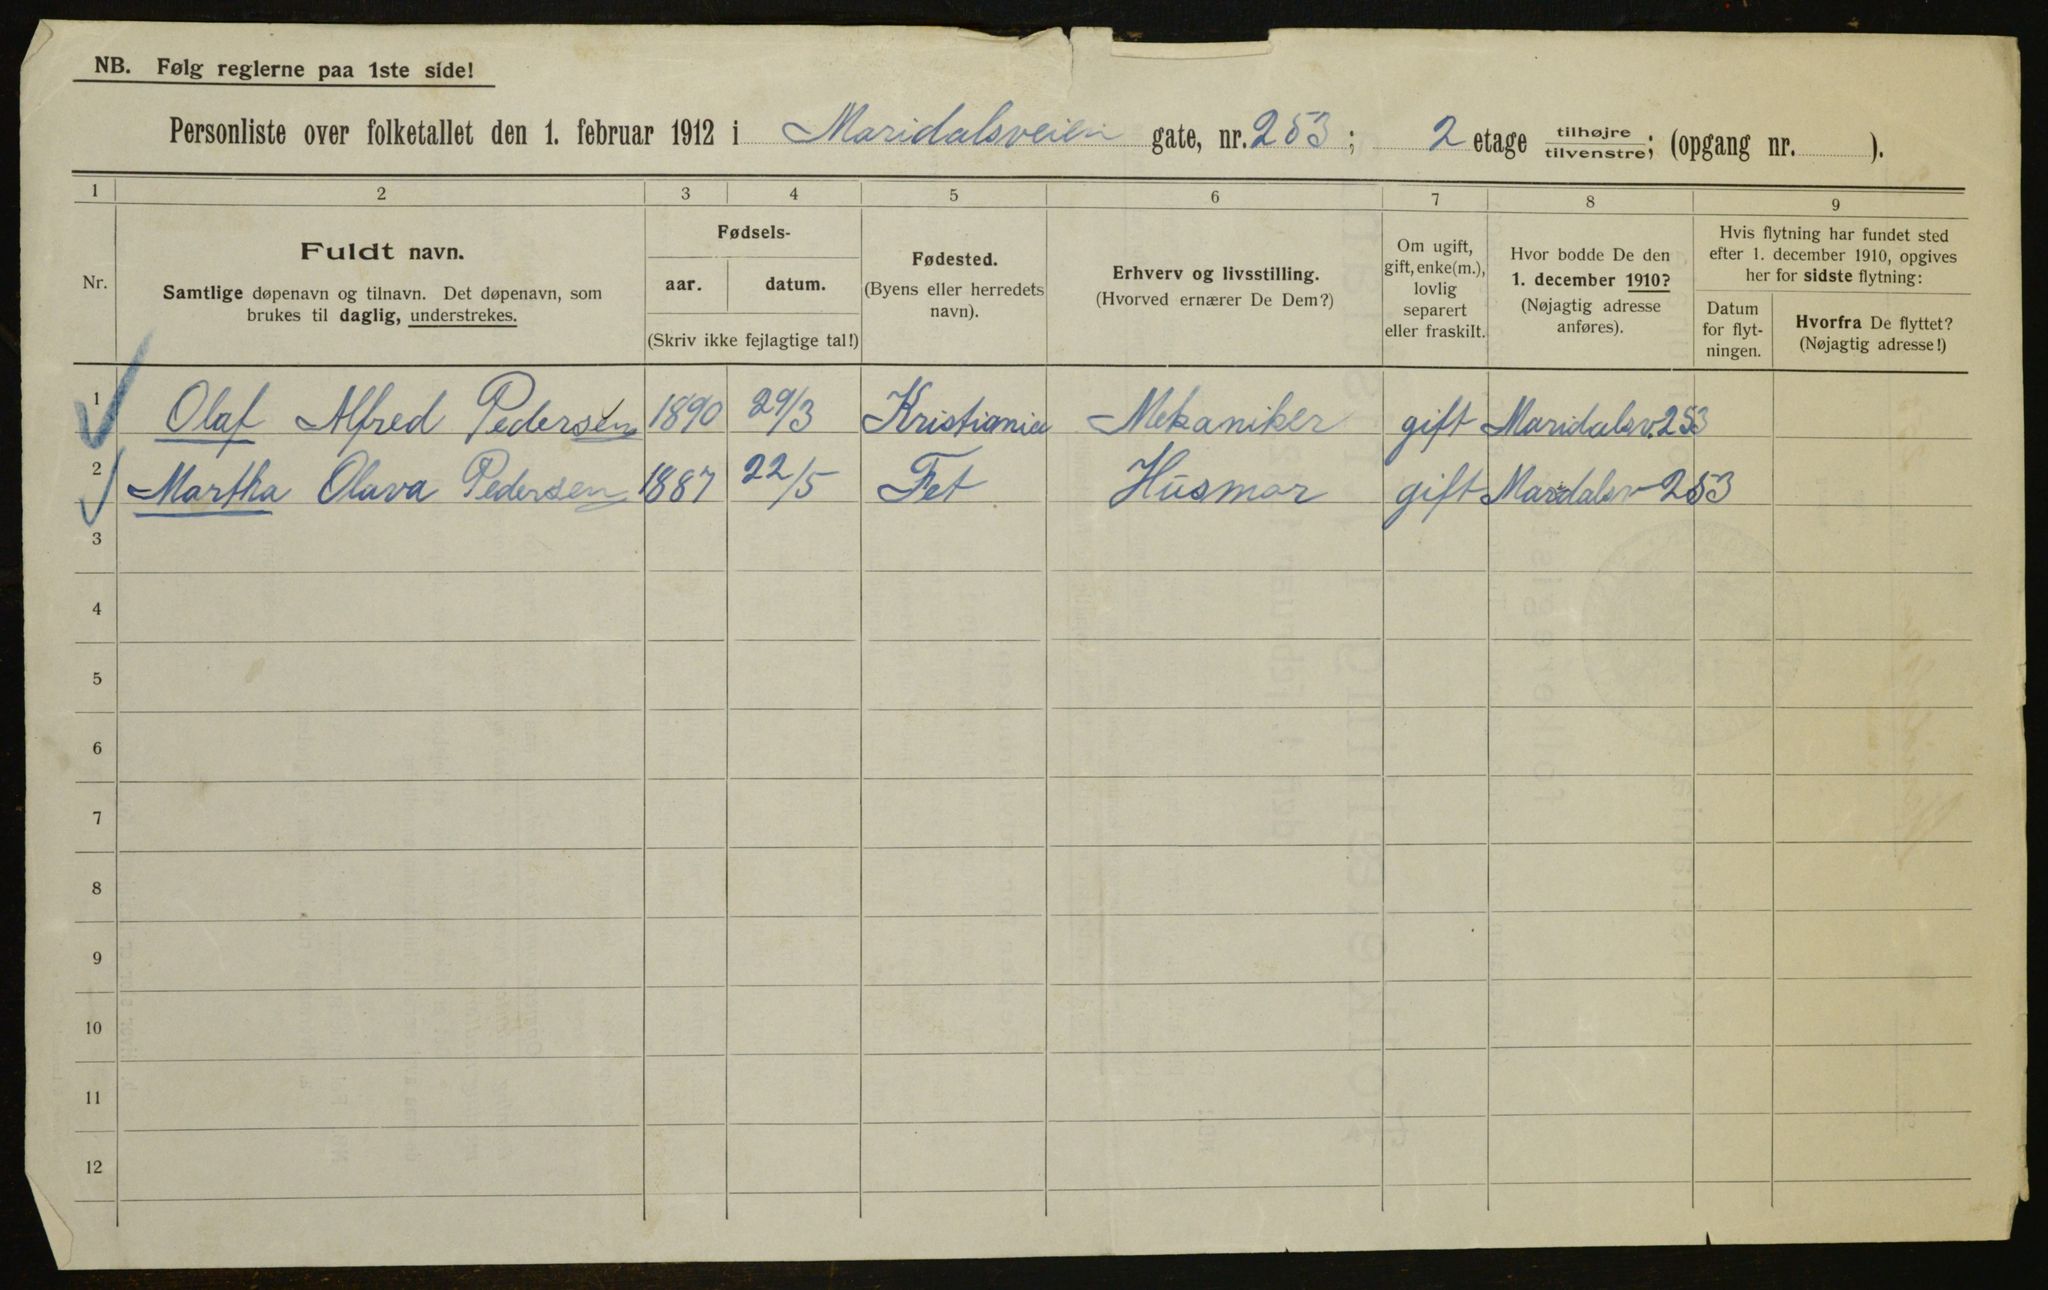 NB. Følg reglerne paa 1ste side!
Personliste over folketallet den 1. februar 1912 i Maridalsveien gate, nr. 253; 2 etage tilhøjre/tilvenstre; (opgang nr. ).
1 2 3 4 5 6 7 8 9
Nr.
Fuldt navn.
Samtlige døpenavn og tilnavn. Det døpenavn, som
brukes til daglig, understrekes.
Fødsels-
aar. datum.
(Skriv ikke fejlagtige tal!)
Fødested.
(Byens eller herredets
navn).
Erhverv og livsstilling.
(Hvorved ernærer De Dem?)
Om ugift,
gift, enke(m.),
lovlig
separert
eller fraskilt.
Hvor bodde De den
1. december 1910?
(Nøjagtig adresse
anføres).
Hvis flytning har fundet sted
efter 1. december 1910, opgives
her for sidste flytning:
Datum
for flyt-
ningen.
Hvorfra De flyttet?
(Nøjagtig adresse!)
1 Olaf Alfred Pedersen 1890 29/3 Kristiania Mekaniker gift Maridalsv. 253
2 Martha Olava Pedersen 1887 22/5 Fet Husmor gift Maridalsv 253
3
4
5
6
7
8
9
10
11
12